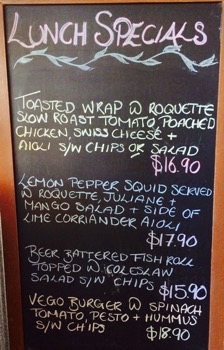 LUNCH SPECIALS
TOASTED WRAP W ROQUETTE
SLOW ROAST TOMATO, POACHED
CHICKEN, SWISS CHEESE +
AIOLI S/W CHIPS OR SALAD
$16.90
LEMON PEPPER SQUID SERVED
W ROQUETTE, JULIANE +
MANGO SALAD + SIDE OF
LIME CORRIANDER AIOLI
$17.90
BEER BATTERED FISH ROLL
TOPPED W COLESLAW
SALAD S/W CHIPS
$15.90
VEGO BURGER W SPINACH
TOMATO, PESTO + HUMMUS
S/W CHIPS
$18.90